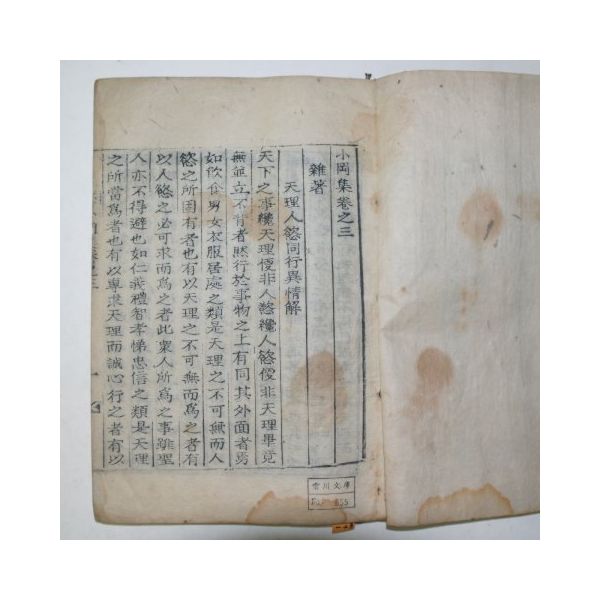 小岡集卷之三
雜著
天理人慾同行異情解
天下之事纔天理便非人慾纔人慾便非天理畢竟
無並立不背者然行於事物之上有同其外面者焉
如飮食男女衣服居處之類是天理之不可無而人
慾之所固有者也有以天理之不可無而爲之者有
以人慾之必可求而爲之者此衆人所爲之事雖聖
人亦不得避也如仁義禮智孝悌忠信之類是天理
之所當爲者也有以專求天理而誠心行之者有以
雪川文庫
855